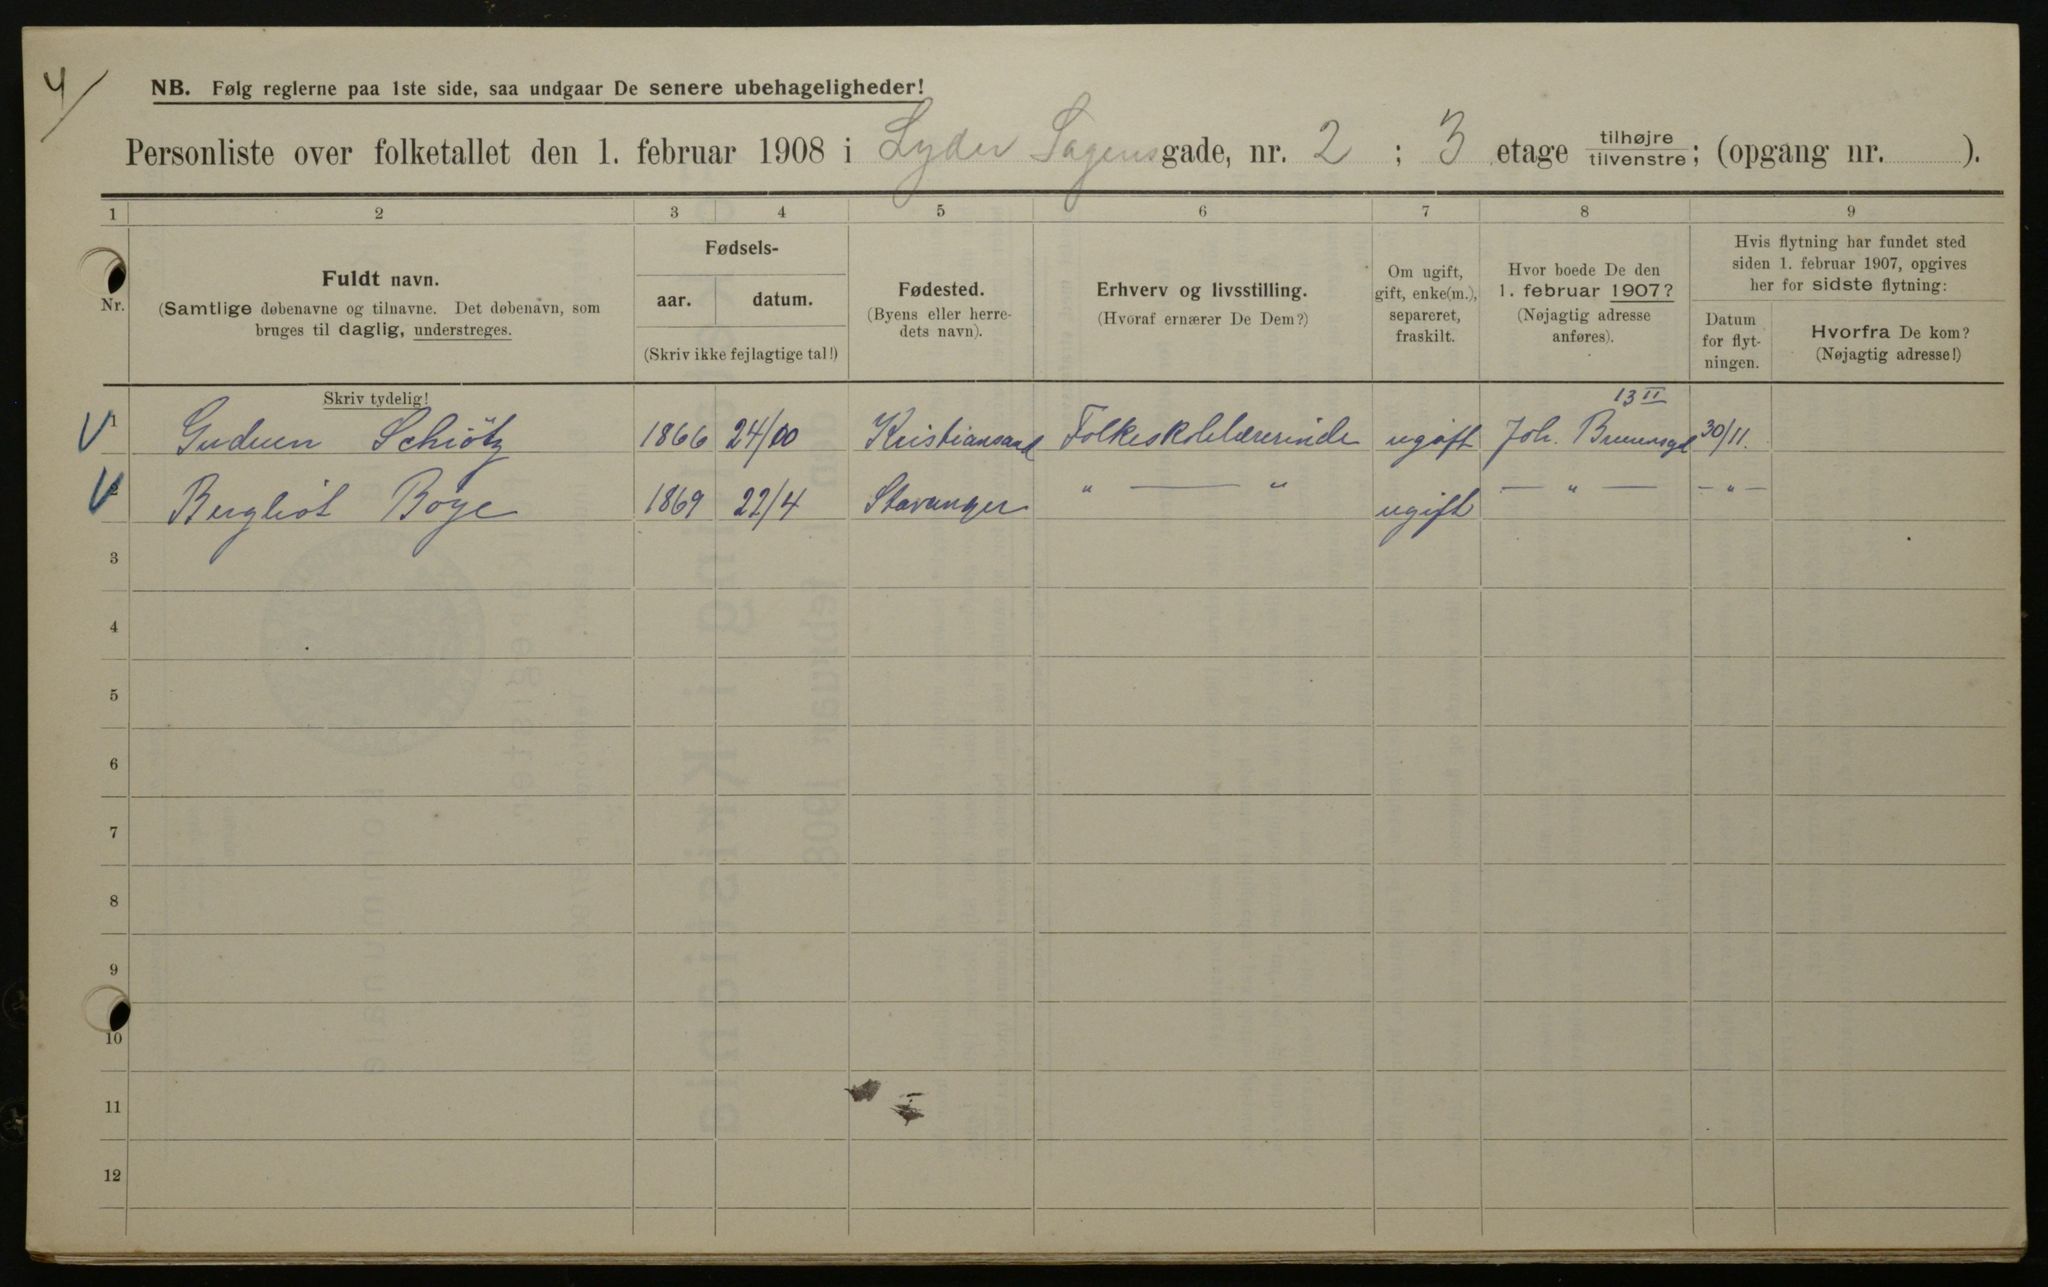 4/
NB. Følg reglerne paa 1ste side, saa undgaar De senere ubehageligheder!
Personliste over folketallet den 1. februar 1908 i Lyder Sagensgade, nr. 2 ; 3 etage tilhøjre tilvenstre; (opgang nr. ).
1 2 3 4 5 6 7 8 9
Nr.
Fuldt navn.
(Samtlige døbenavne og tilnavne. Det døbenavn, som
bruges til daglig, understreges.
Fødsels-
aar. datum.
(Skriv ikke fejlagtige tal!)
Fødested.
(Byens eller herre-
dets navn).
Erhverv og livsstilling.
(Hvoraf ernærer De Dem?)
Om ugift,
gift, enke(m.),
separeret,
fraskilt.
Hvor boede De den
1. februar 1907?
(Nøjagtig adresse
anføres).
Hvis flytning har fundet sted
siden 1. februar 1907, opgives
her for sidste flytning:
Datum
for flyt-
ningen.
Hvorfra De kom?
(Nøjagtig adresse!)
Skriv tydelig!
13 II
1 Gudrun Schiötz 1866 24/10 Kristiansand Folkeskolelærerinde ugift Joh. Bruunsgd 30/11.
2 Bergliot Boye 1869 22/4 Stavanger " — " ugift — " — — " —
3
4
5
6
7
8
9
10
11
12